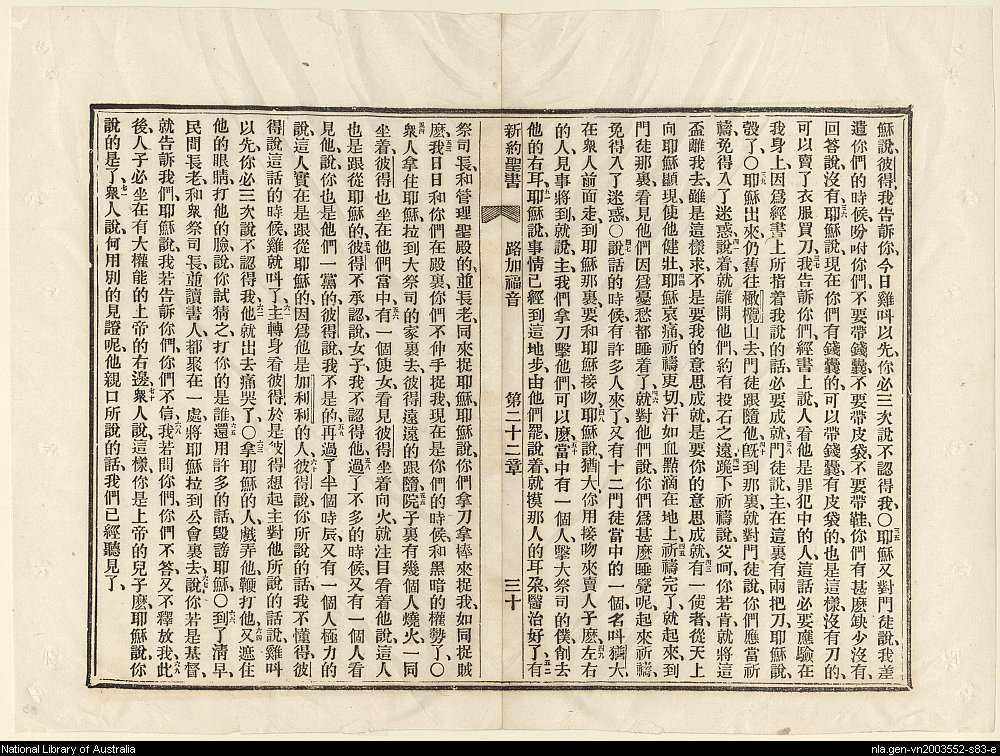 穌說、彼得我告訴你、今日雞叫以先、你必三次說不認得我、〇三五耶穌又對門徒說、我差
遣你們的時候、吩咐你們不要帶錢囊、不要帶皮袋、不要帶鞋、你們有甚麽缺少沒有、
回答說、沒有、三六耶穌說、現在你們有錢囊的、可以帶錢囊、有皮袋的也是這樣、沒有刀的、
可以賣了衣服買刀、三七我告訴你們、經書上說、人看他是罪犯中的人、這話必要應驗在
我身上、因爲經書上所指着我說的話、必要成就、三八門徒說、主在這裏有兩把刀、耶穌說、
彀了、〇三九耶穌出來、仍舊往橄欖山去、門徒跟隨他、四十旣到那裏、就對門徒說、你們應當祈
禱、免得入了迷惑、四一說着就離開他們、約有投石之遠、跪下祈禱說、四二父呵、你若肯就將這
盃離我去、雖是這樣、求不是要我的意思成就、是要你的意思成就、四三有一使者從天上
向耶穌顯現、使他健壯、四四耶穌哀痛祈禱更切、汗如血點滴在地上、四五祈禱完了、就起來、到
門徒那裏、看見他們因爲憂愁都睡着了、四六就對他們說、你們爲甚麽睡覺呢、起來祈禱、
免得入了迷惑、〇四七說話的時候、有許多人來了、又有十二門徒當中的一個、名叫猶大、
在衆人前面走到耶穌那裏、要和耶穌接吻、四八耶穌說、猶大、你用接吻來賣人子麽、四九左右
的人見事將到、就說、主我們拿刀擊他們、可以麽、五十當中有一個人擊大祭司的僕、削去
他的右耳、五一耶穌說、事情已經到這地步、由他們罷、說着就摸那人的耳朶醫治好了、五二有
新約聖書 路加福音 第二十二章 三十
祭司長、和管理聖殿的、並長老、同來捉耶穌、耶穌說、你們拿刀拿棒來捉我、如同捉賊
麽、五三我日日和你們在殿裏、你們不伸手捉我、現在是你們的時候、和黑暗的權勢了、〇
五四衆人拿住耶穌、拉到大祭司的家裏去、彼得遠遠的跟隨、五五院子裏有幾個人燒火、一同
坐着、彼得也坐在他們當中、五六有一個使女看見彼得坐着向火、就注目看着他說、這人
也是跟從耶穌的、五七彼得不承認、說、女子、我不認得他、五八過了不多的時候、又有一個人看
見他、說、你也是他們一黨的、彼得說、我不是的、五九再過了半個時辰、又有一個人極力的
說、這人實在是跟從耶穌的、因爲他是加利利的人、六十彼得說、你所說的話、我不懂得、彼
得說這話的時候、雞就叫了、六一主轉身看彼得、於是彼得想起主對他所說的話、說、雞叫
以先、你必三次說不認得我、六二他就出去痛哭了、〇六三拿耶穌的人、戲弄他、鞭打他、六四又遮住
他的眼睛、打他的臉、說、你試猜之、打你的是誰、六五還用許多的話、毀謗耶穌、〇六六到了清早、
民間長老、和衆祭司長、並讀書人、都聚在一處、將耶穌拉到公會裏去、說、六七你若是基督、
就告訴我們、耶穌說、我若告訴你們、你們不信、六八我若問你們、你們不答、又不釋放我、六九此
後人子必坐在有大權能的上帝的右邊、七十衆人說、這樣、你是上帝的兒子麽、耶穌說、你
說的是了、七一衆人說、何用別的見證呢、他親口所說的話、我們已經聽見了、
National Library of Australia
nla.gen-vn2003552-s83-e